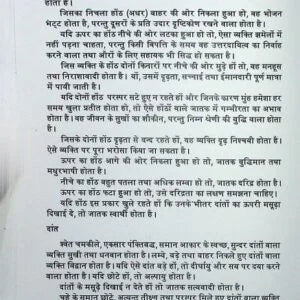 होता है।
जिसका निचला होंठ (अधर) बाहर की ओर निकला हुआ हो, वह भोजन
भट्ट होता है, परन्तु दूसरों के प्रति उदार दृष्टिकोण रखने वाला होता है।
यदि ऊपर का होंठ नीचे की ओर लटका हुआ हो, तो ऐसा व्यक्ति झमेलों में
नहीं पड़ना चाहता, परन्तु किसी विपत्ति के समय वह उत्तरदायित्व का निर्वाह
करने वाला तथा औरों के लिए सहायक भी सिद्ध हो सकता है।
जिस व्यक्ति के दोनों होंठ किनारों पर नीचे की ओर मुड़े हों, वह मनहूस
तथा निराशावादी होता है। यों, उसमें दृढ़ता, सच्चाई तथा ईमानदारी पूर्ण मात्रा
में पायी जाती है।
यदि दोनों होंठ परस्पर सटे हुए न रहते हों और जिनके कारण मुंह हमेशा हर
समय खुला प्रतीत होता हो, तो ऐसे होंठों वाले जातक में गम्भीरता का अभाव
होता है। वह जीवन के सुखों का शौकीन, परन्तु निम्न श्रेणी की बुद्धि वाला होता
है।
जिसके दोनों होंठ दृढ़ता से बन्द रहते हों, वह व्यक्ति दृढ़ निश्चयी होता है।
ऐसे व्यक्ति पर पूरा भरोसा किया जा सकता है।
ऊपर का होंठ आगे की ओर निकला हुआ हो, तो जातक बुद्धिमान तथा
मधुरभाषी होता है।
नीचे का होंठ बहुत पतला तथा अधिक लम्बा हो, तो जातक दरिद्र होता है।
ऊपर का होंठ फटा हुआ हो, तो उसे दरिद्रता का लक्षण समझना चाहिए।
यदि होंठ इस प्रकार खुले रहते हों कि उनके भीतर दांतों का ऊपरी मसूढ़ा
दिखाई दे, तो जातक स्वार्थी होता है।
दांत
श्वेत चमकीले, एकसार पंक्तिबद्ध, समान आकार के स्वच्छ, सुन्दर दांतों वाला
व्यक्ति सुखी तथा धनवान होता है। लम्बे, बड़े तथा बाहर निकले हुए दांतों वाला
व्यक्ति विद्वान होता है। यदि ऐसे दांत बड़े हों, तो दीर्घायु और सब पर दया करने
वाला होता है। यदि छोटे हों, तो अल्पायु होता है।
यदि दांतों का मसूढ़ा दिखाई दे, तो जातक स्वार्थी होता है।
चूहे के समान छोटे, अत्यन्त तीक्ष्ण तथा परस्पर मिले हुए दांतों वाला व्यक्ति